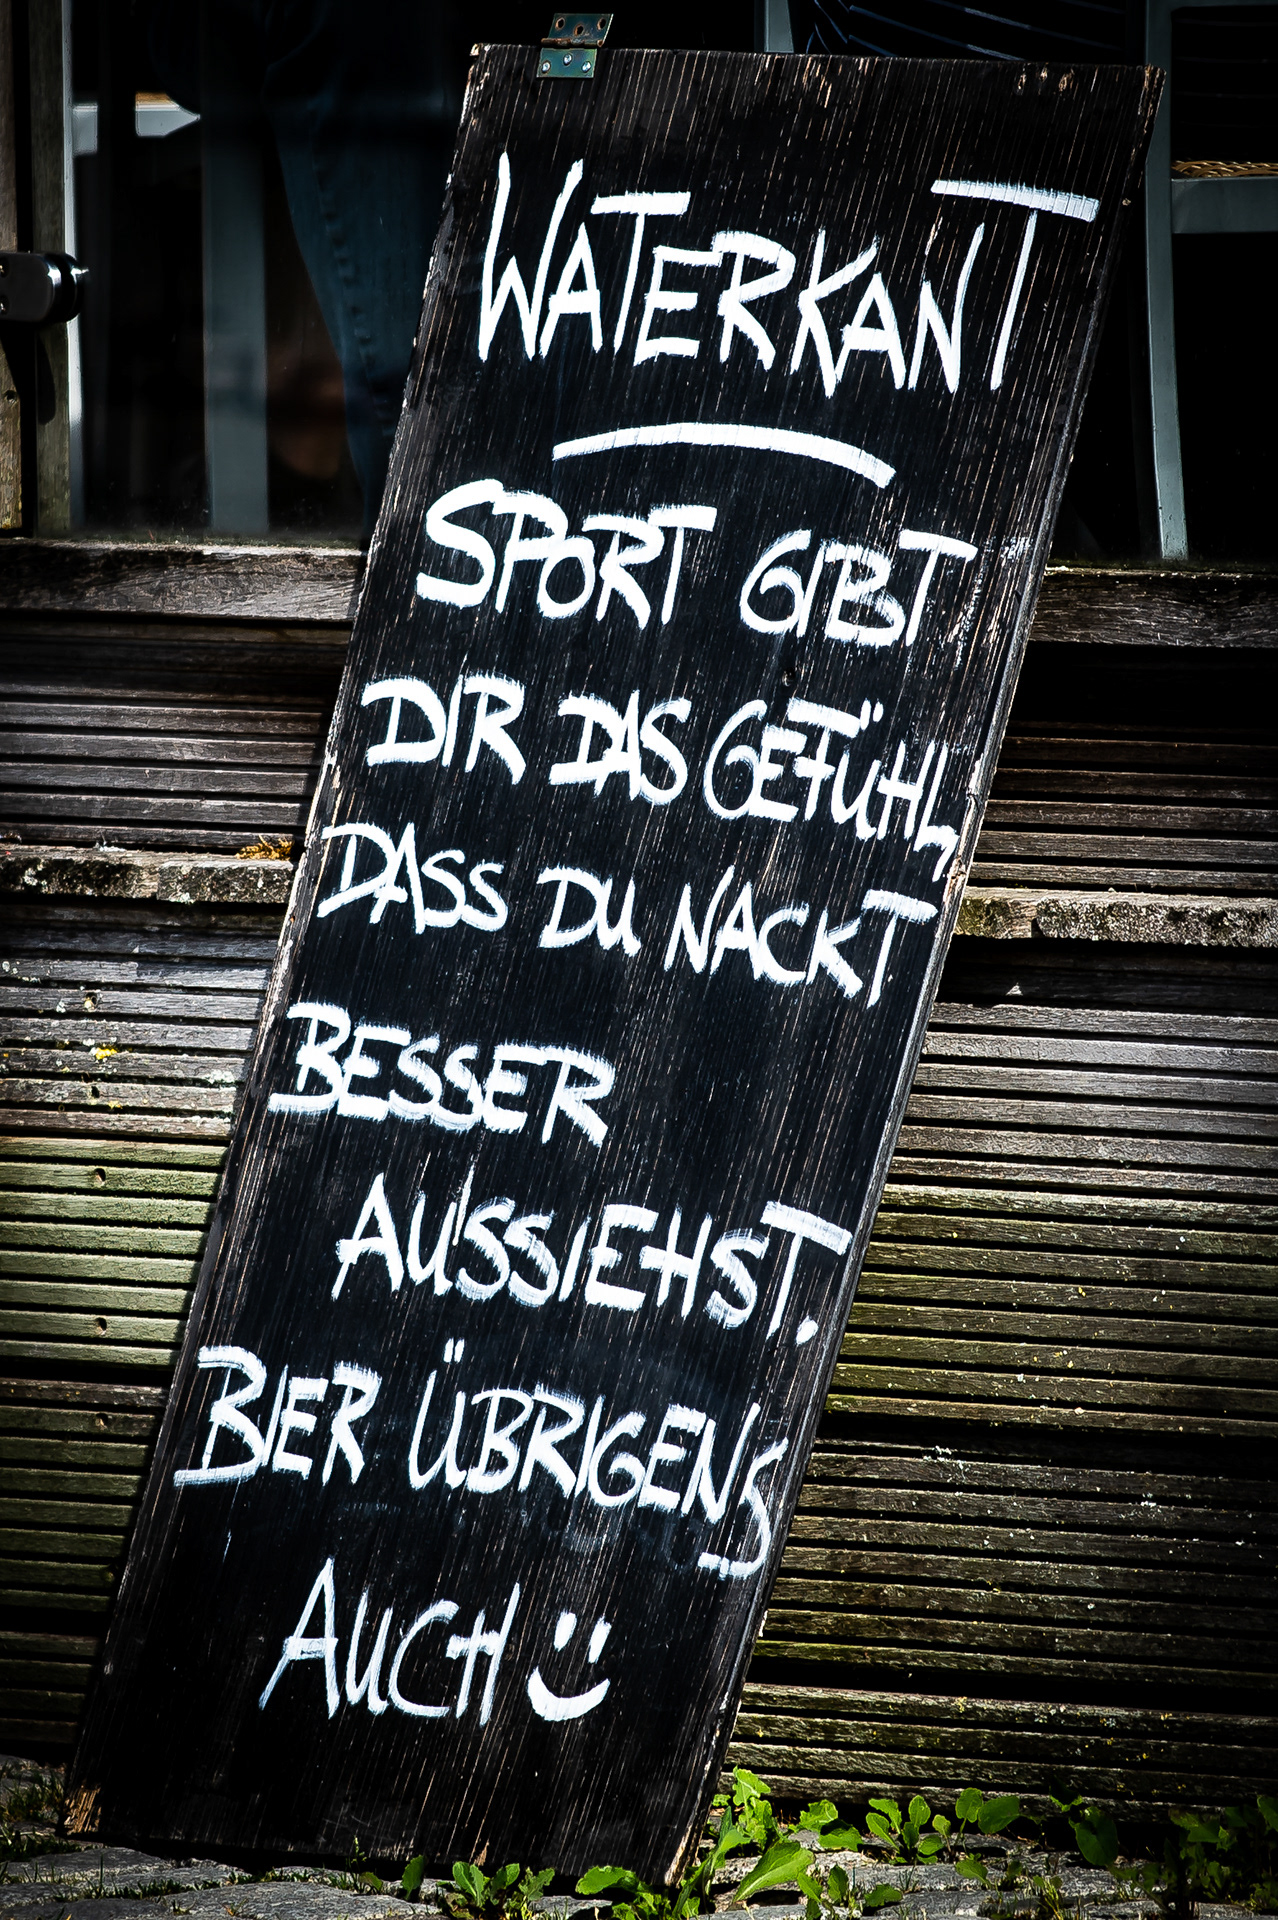 WATERKANT
SPORT GIBT
DIR DAS GEFÜHL,
DASS DU NACKT
BESSER
AUSSIEHST.
BIER ÜBRIGENS
AUCH